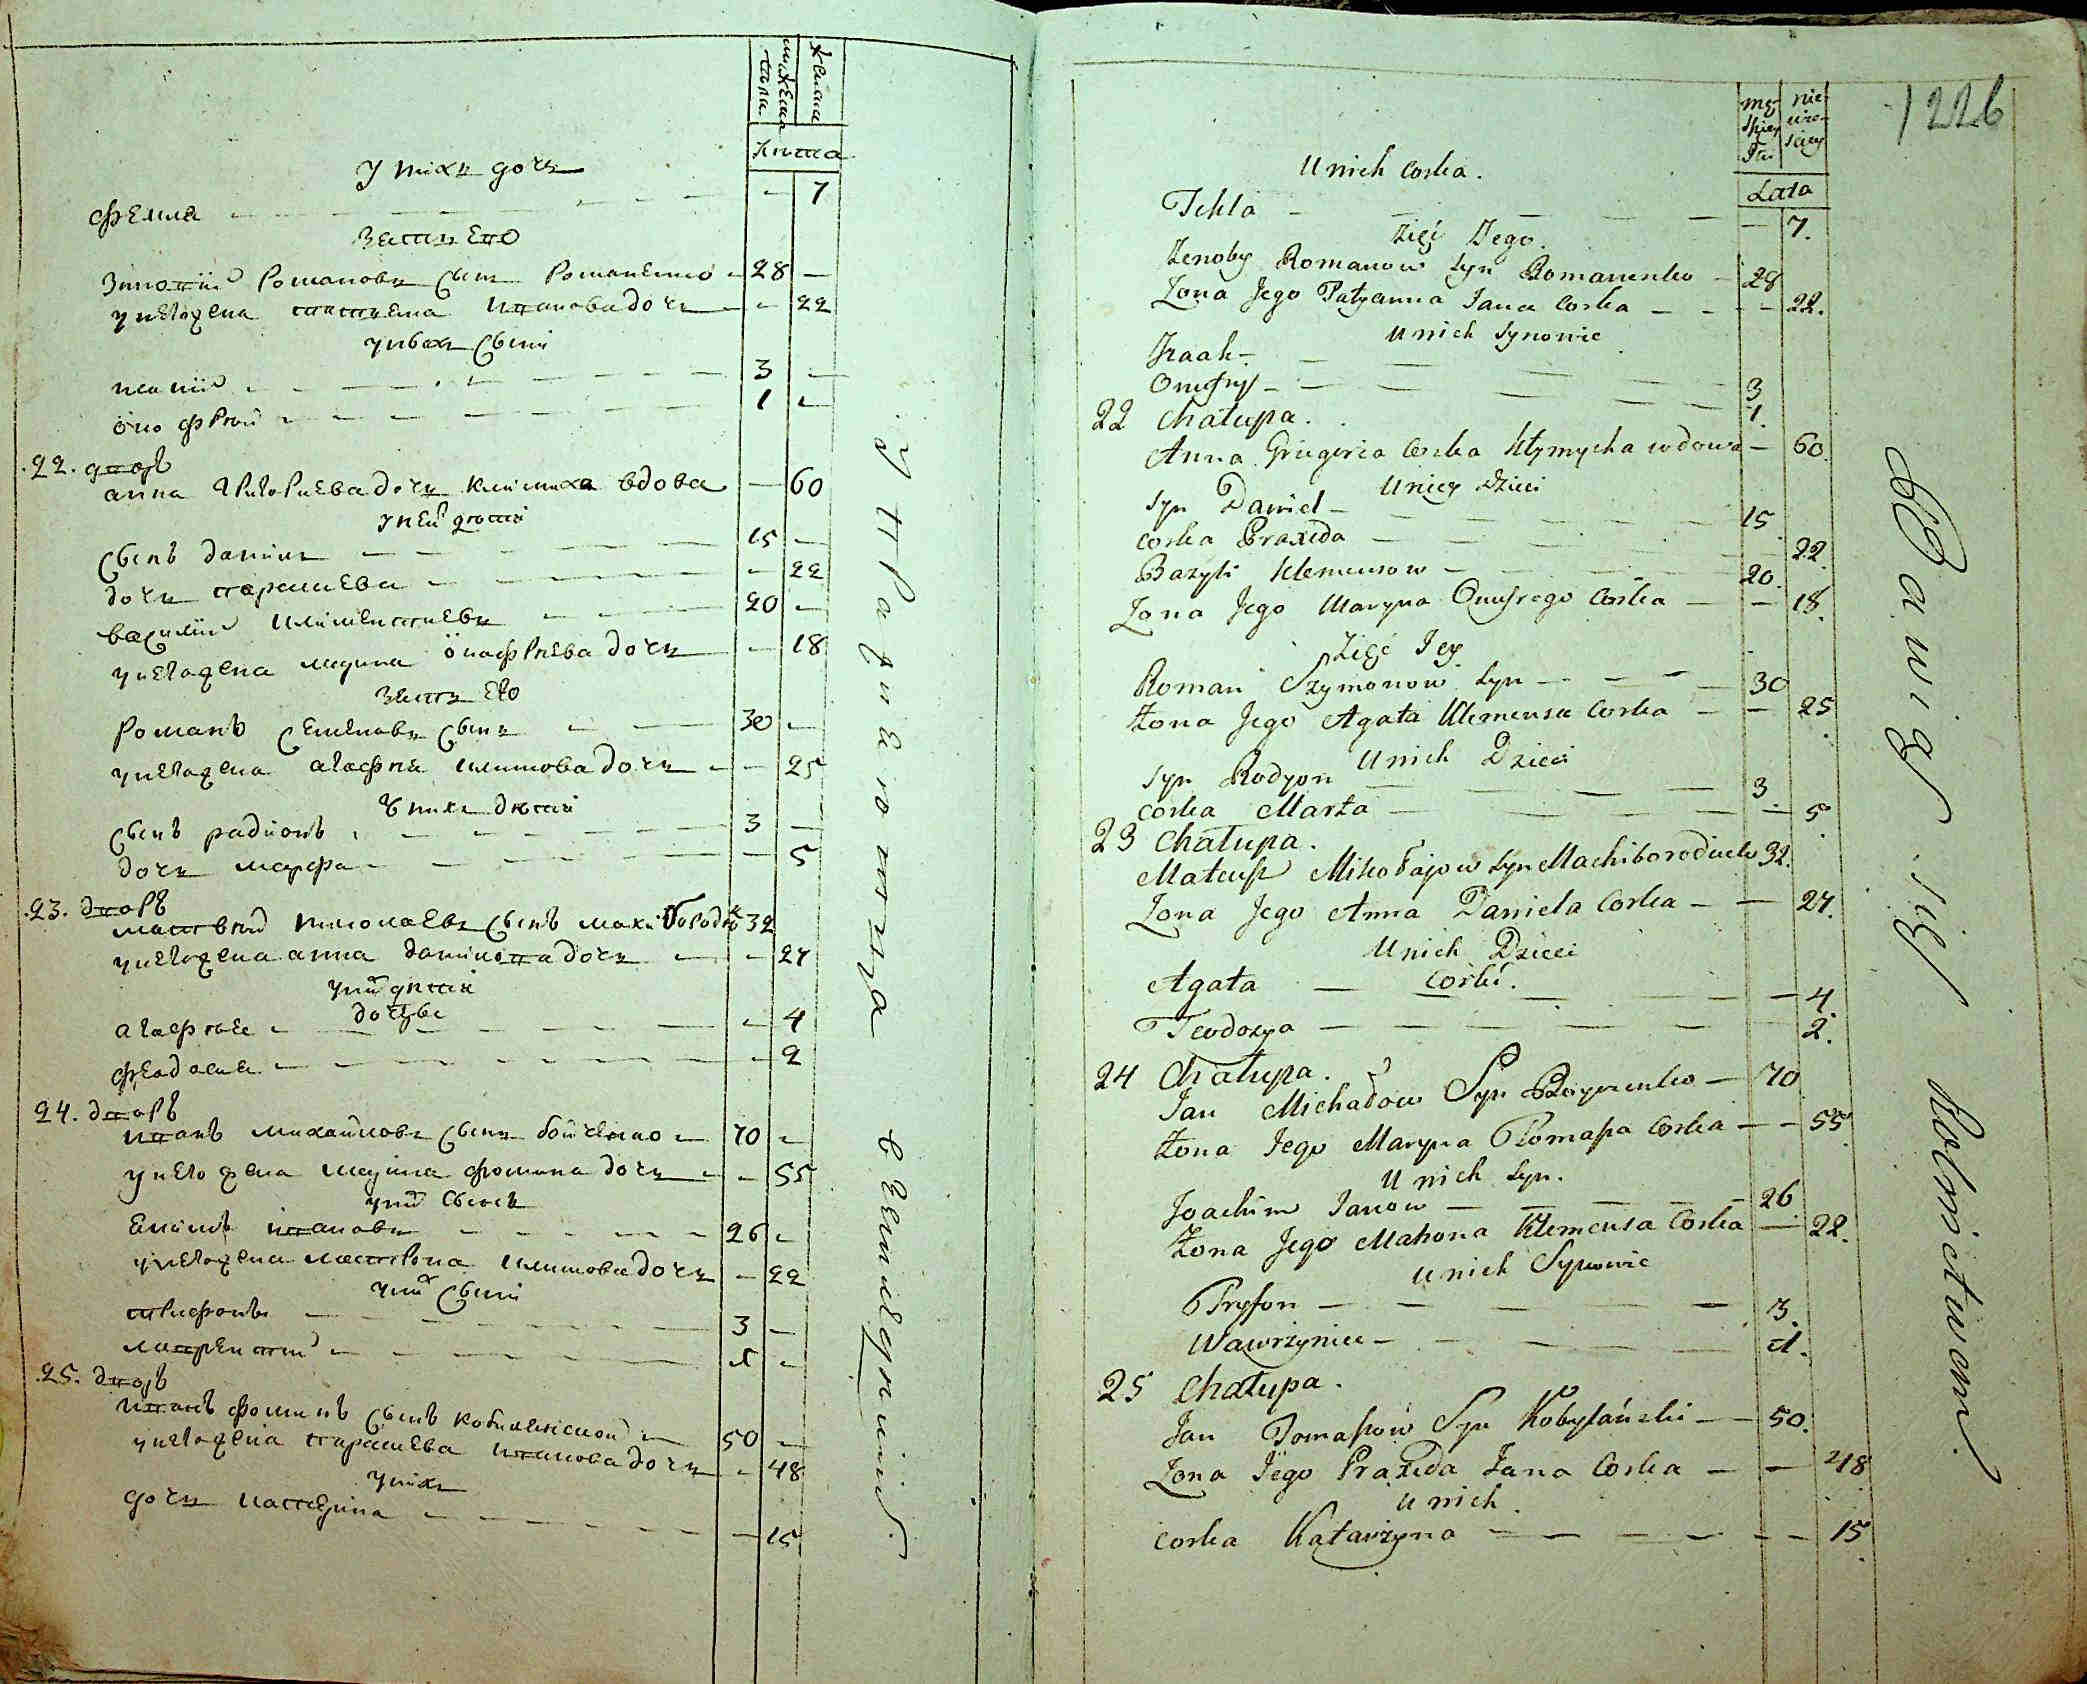 мужеска пола
женска
лѣта
у нихъ дочь
Фекла - 7
зять его
Зиновiй Романовъ сынъ Романенко - 28 -
у него жена Татьяна Иванова дочь - 22
у нихъ сыны
Исакiй - 3 -
Онофрей - 1 -
22. дворъ
Анна Григориева дочь Климиха вдова - 60
у ней дѣти
сынъ Данило 15 -
дочь Парасцева - 22
Василiй Климентиевъ 20 -
у него жена Марина Онофриева дочь - 18
зять ей
Романъ Семеновъ сынъ 30 -
у него жена Агафия Климова дочь - 25
у нихъ дѣти
сынъ Радионъ 3 -
дочь Марфа - 5
23. дворъ
Матвей Николаевъ сынъ Махибородко 32
у него жена Анна Данилова дочь - 27
у них дѣти
дочери
Агафия - 4
Феодосия - 2
24. дворъ
Иванъ Михайловъ сынъ Бойченко 70 -
у него жена Марина Фомина дочь - 55
у них сынъ
Екимъ Ивановъ 26 -
у него жена Матрона Климова дочь - 22
у них сыны
Трифонъ 3 -
Лаврентий 1 -
25. дворъ
Иванъ Фоминъ сынъ Кобилянской 50 -
у него жена Парасцева Иванова дочь - 48
у нихъ
дочь Катерина - 15
Упражняются
в земледѣлии.
1226
męs kiey Płci
nie wies ciey
Lata
U nich Corka.
Tekla - 7.
Zięć Jego.
Zenoby Romanow Syn Romanenko - 28
Zona Jego Patyanna Jana Corka - 22.
U nich Synowie
Izaak - 3
Onufry - 1.
22 Chałupa.
Anna Griegorza Corka Kłymycha wdowa - 60
U niey Dzieci
Syn Daniel - 15
Corka Praxeda - 22.
Bazyli Klemensow - 20.
Zona Jego Maryna Onufrego Corka - 18.
Zięć Jey
Roman Szymonow Syn - 30
Zona Jego Agata Klemensa Corka - 25
U nich Dzieci
Syn Rodyon - 3.
Corka Marta - 5.
23 Chałupa.
Mateusz Mikołajow Syn Machiborodzieko 32.
Zona Jego Anna Daniela Corka - 27.
U nich Dzieci
Corki.
Agata - 4.
Teodozya - 2.
24 Chałupa.
Jan Michałow Syn Boyczenko - 70
Zona Jego Maryna Tomasza Corka - 55
U nich Syn.
Joachim Janow - 26
Zona Jego Matrona Klemensa Corka - 22.
U nich Synowie
Tryfon - 3.
Wawrzyniec - 1.
25 Chałupa.
Jan Tomaszów Syn Kobylański - 50.
Zona Jego Praxeda Jana Corka - 48
U nich
Corka Katarzyna - 15.
Bawią się Rolnictwem.